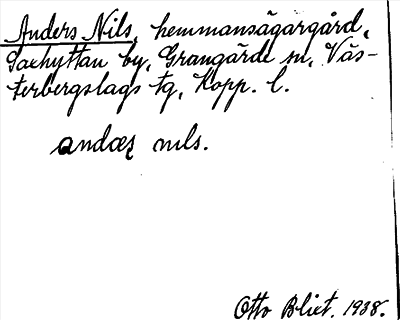 Anders Nils, hemmansägargård,
Saxhyttan by, Grangärde sn, Väs-
terbergslags tg, Kopp. l.
andæʂ nɩls.
Otto Blixt. 1938.